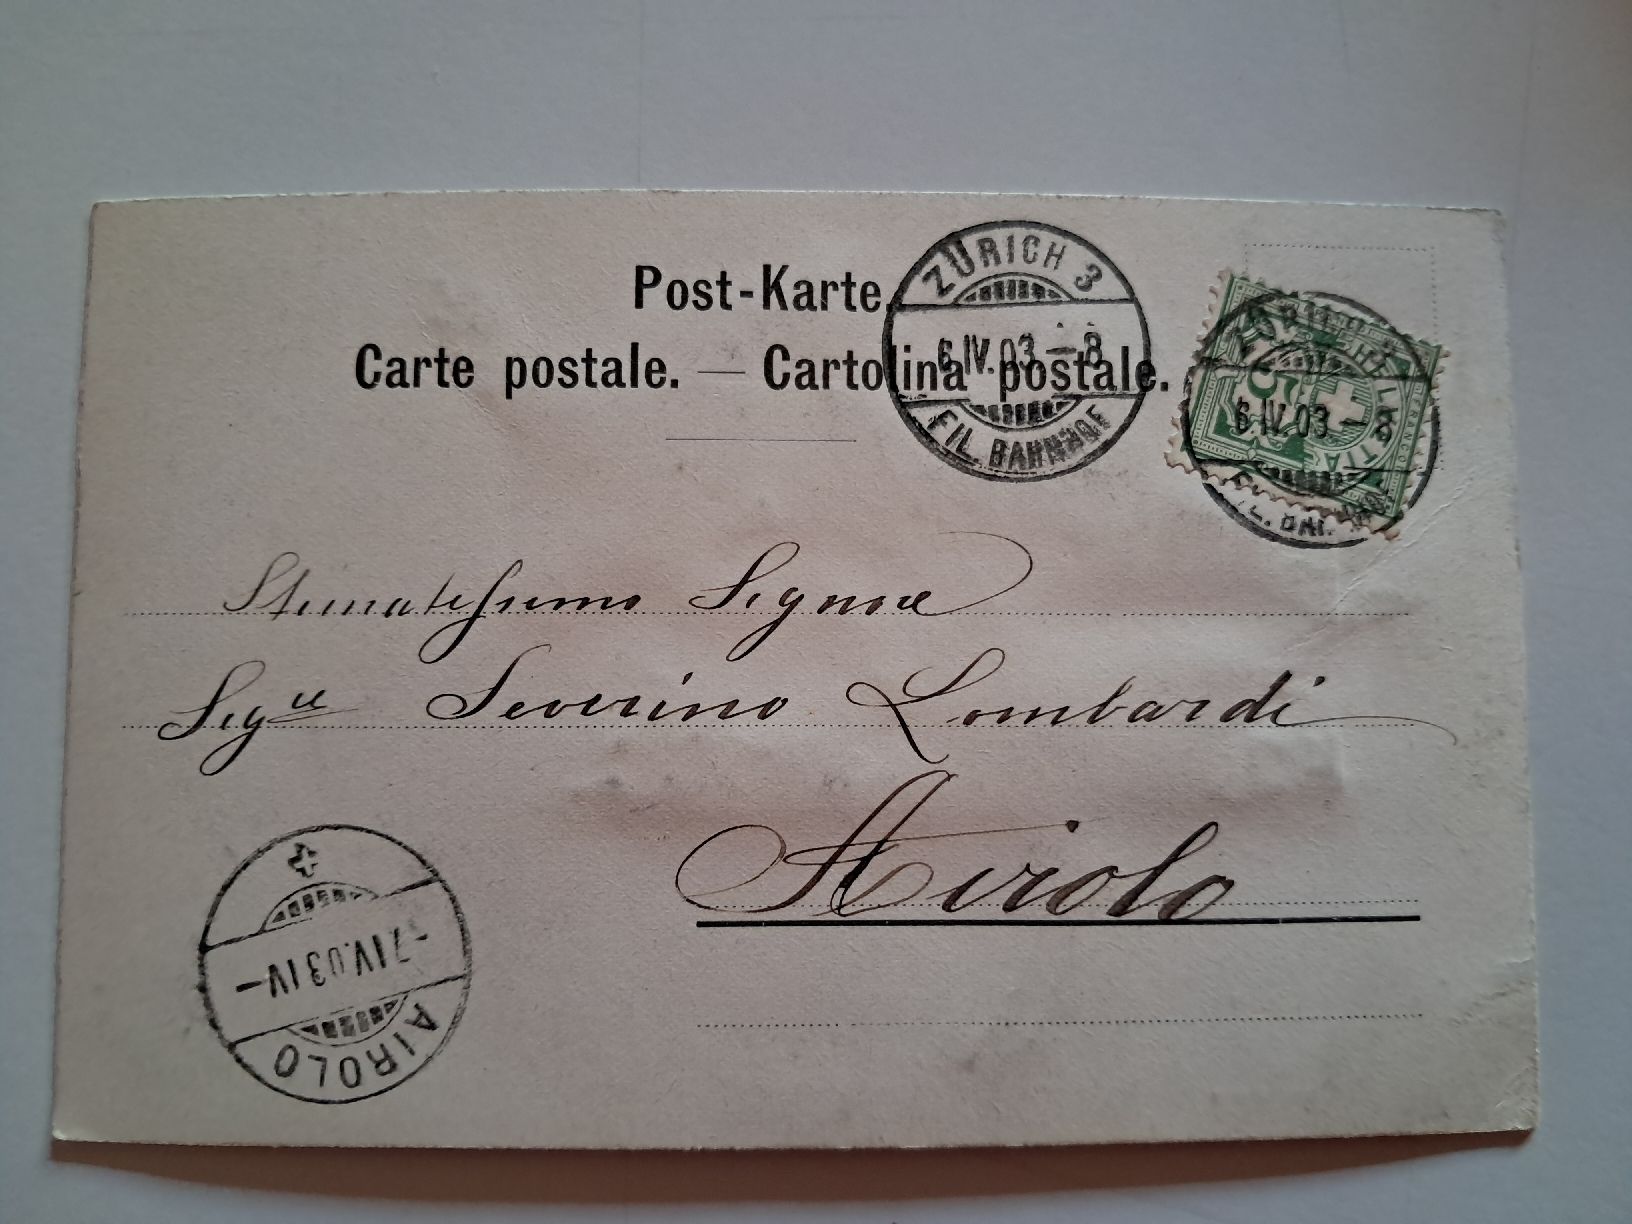 Post-Karte.
Carte postale. — Cartolina postale.
ZÜRICH 3
6 IV. 03 – 8
FIL. BAHNHOF
5
6 IV. 03 – 8
Stimatissimo Signore
Sigre Severino Lombardi
Airolo
-7 IV. 03 IV –
AIROLO